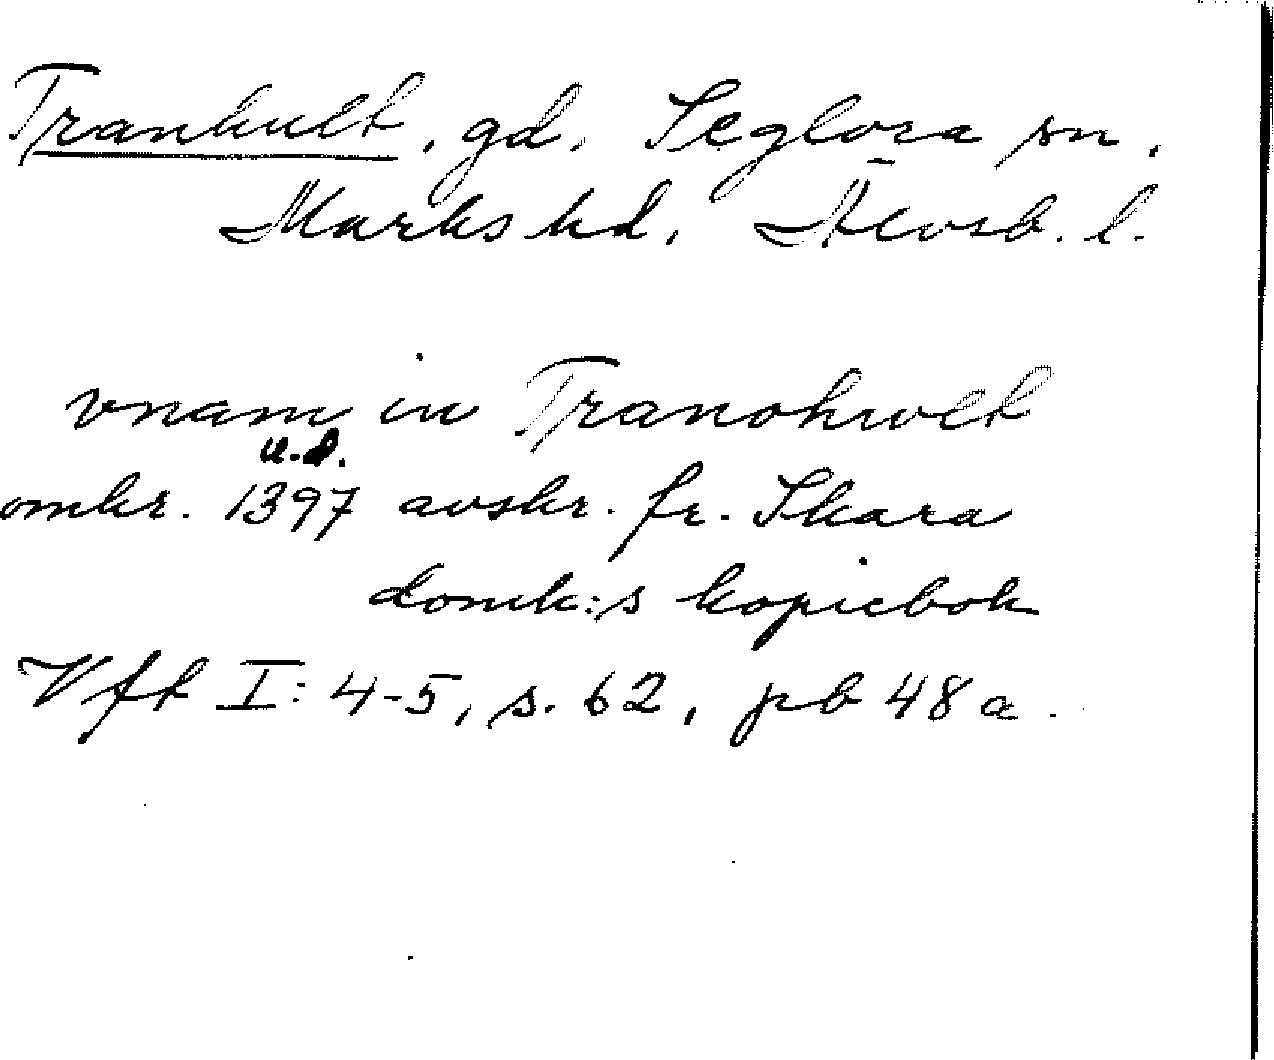 Tranhult, gd. Seglora sn.
Marks hd. Älvsb. l.
vnam in Tranohwlt
u.d.
omkr. 1397 avskr. fr. Skara
domk:s kopiebok
Vft I: 4-5, s. 62, pb 48 a.